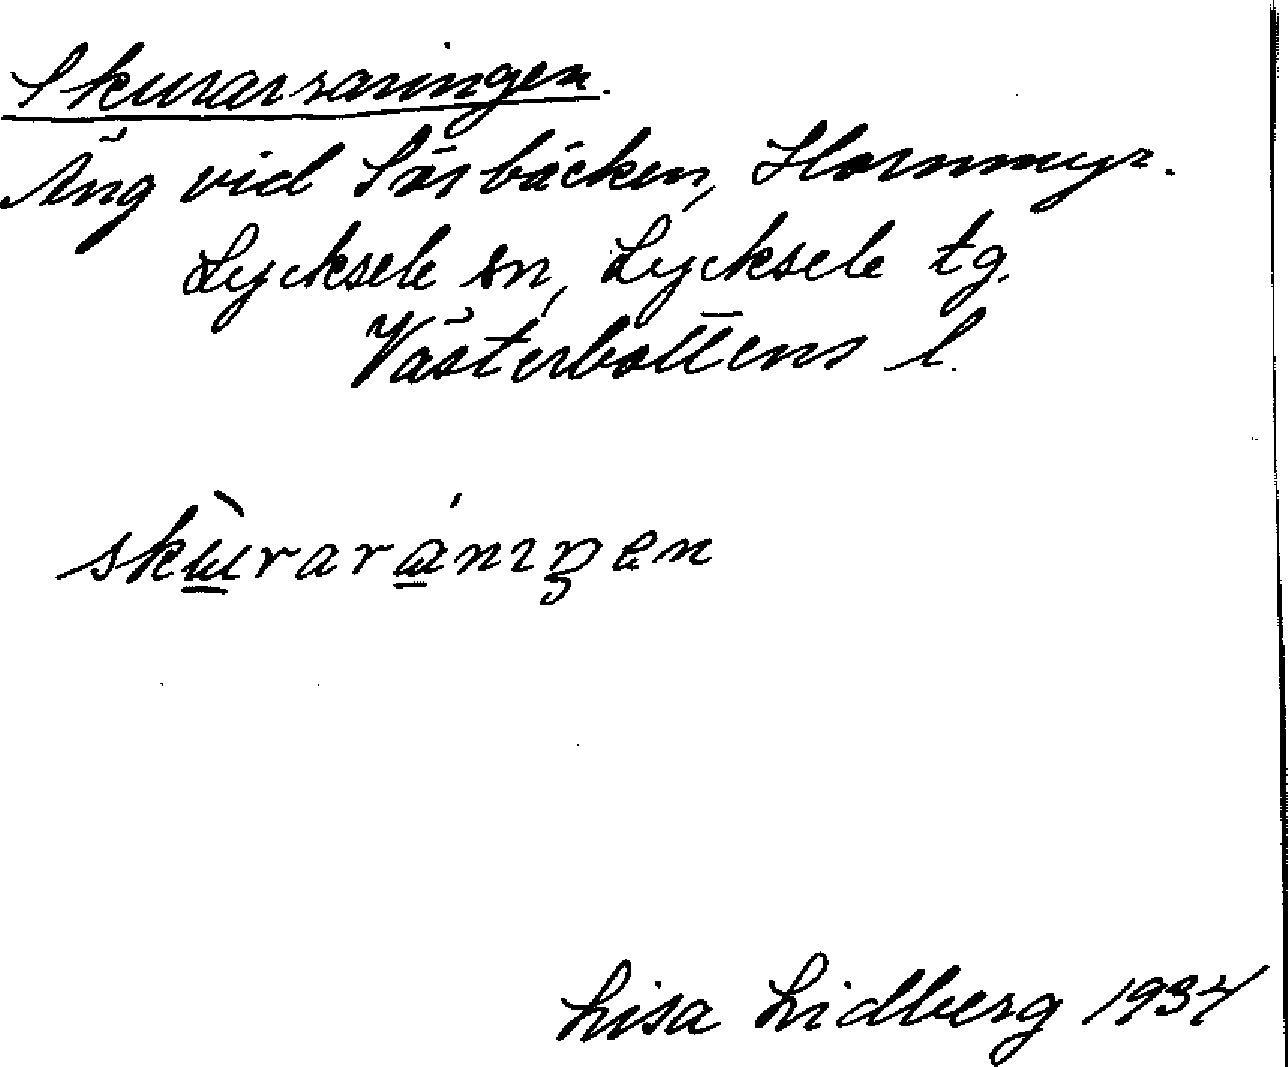 Skurarraningen.
Äng vid Sörbäcken, Hornmyr.
Lycksele sn, Lycksele tg.
Västerbottens l.
skùrarániŋen
Lisa Lidberg 1934